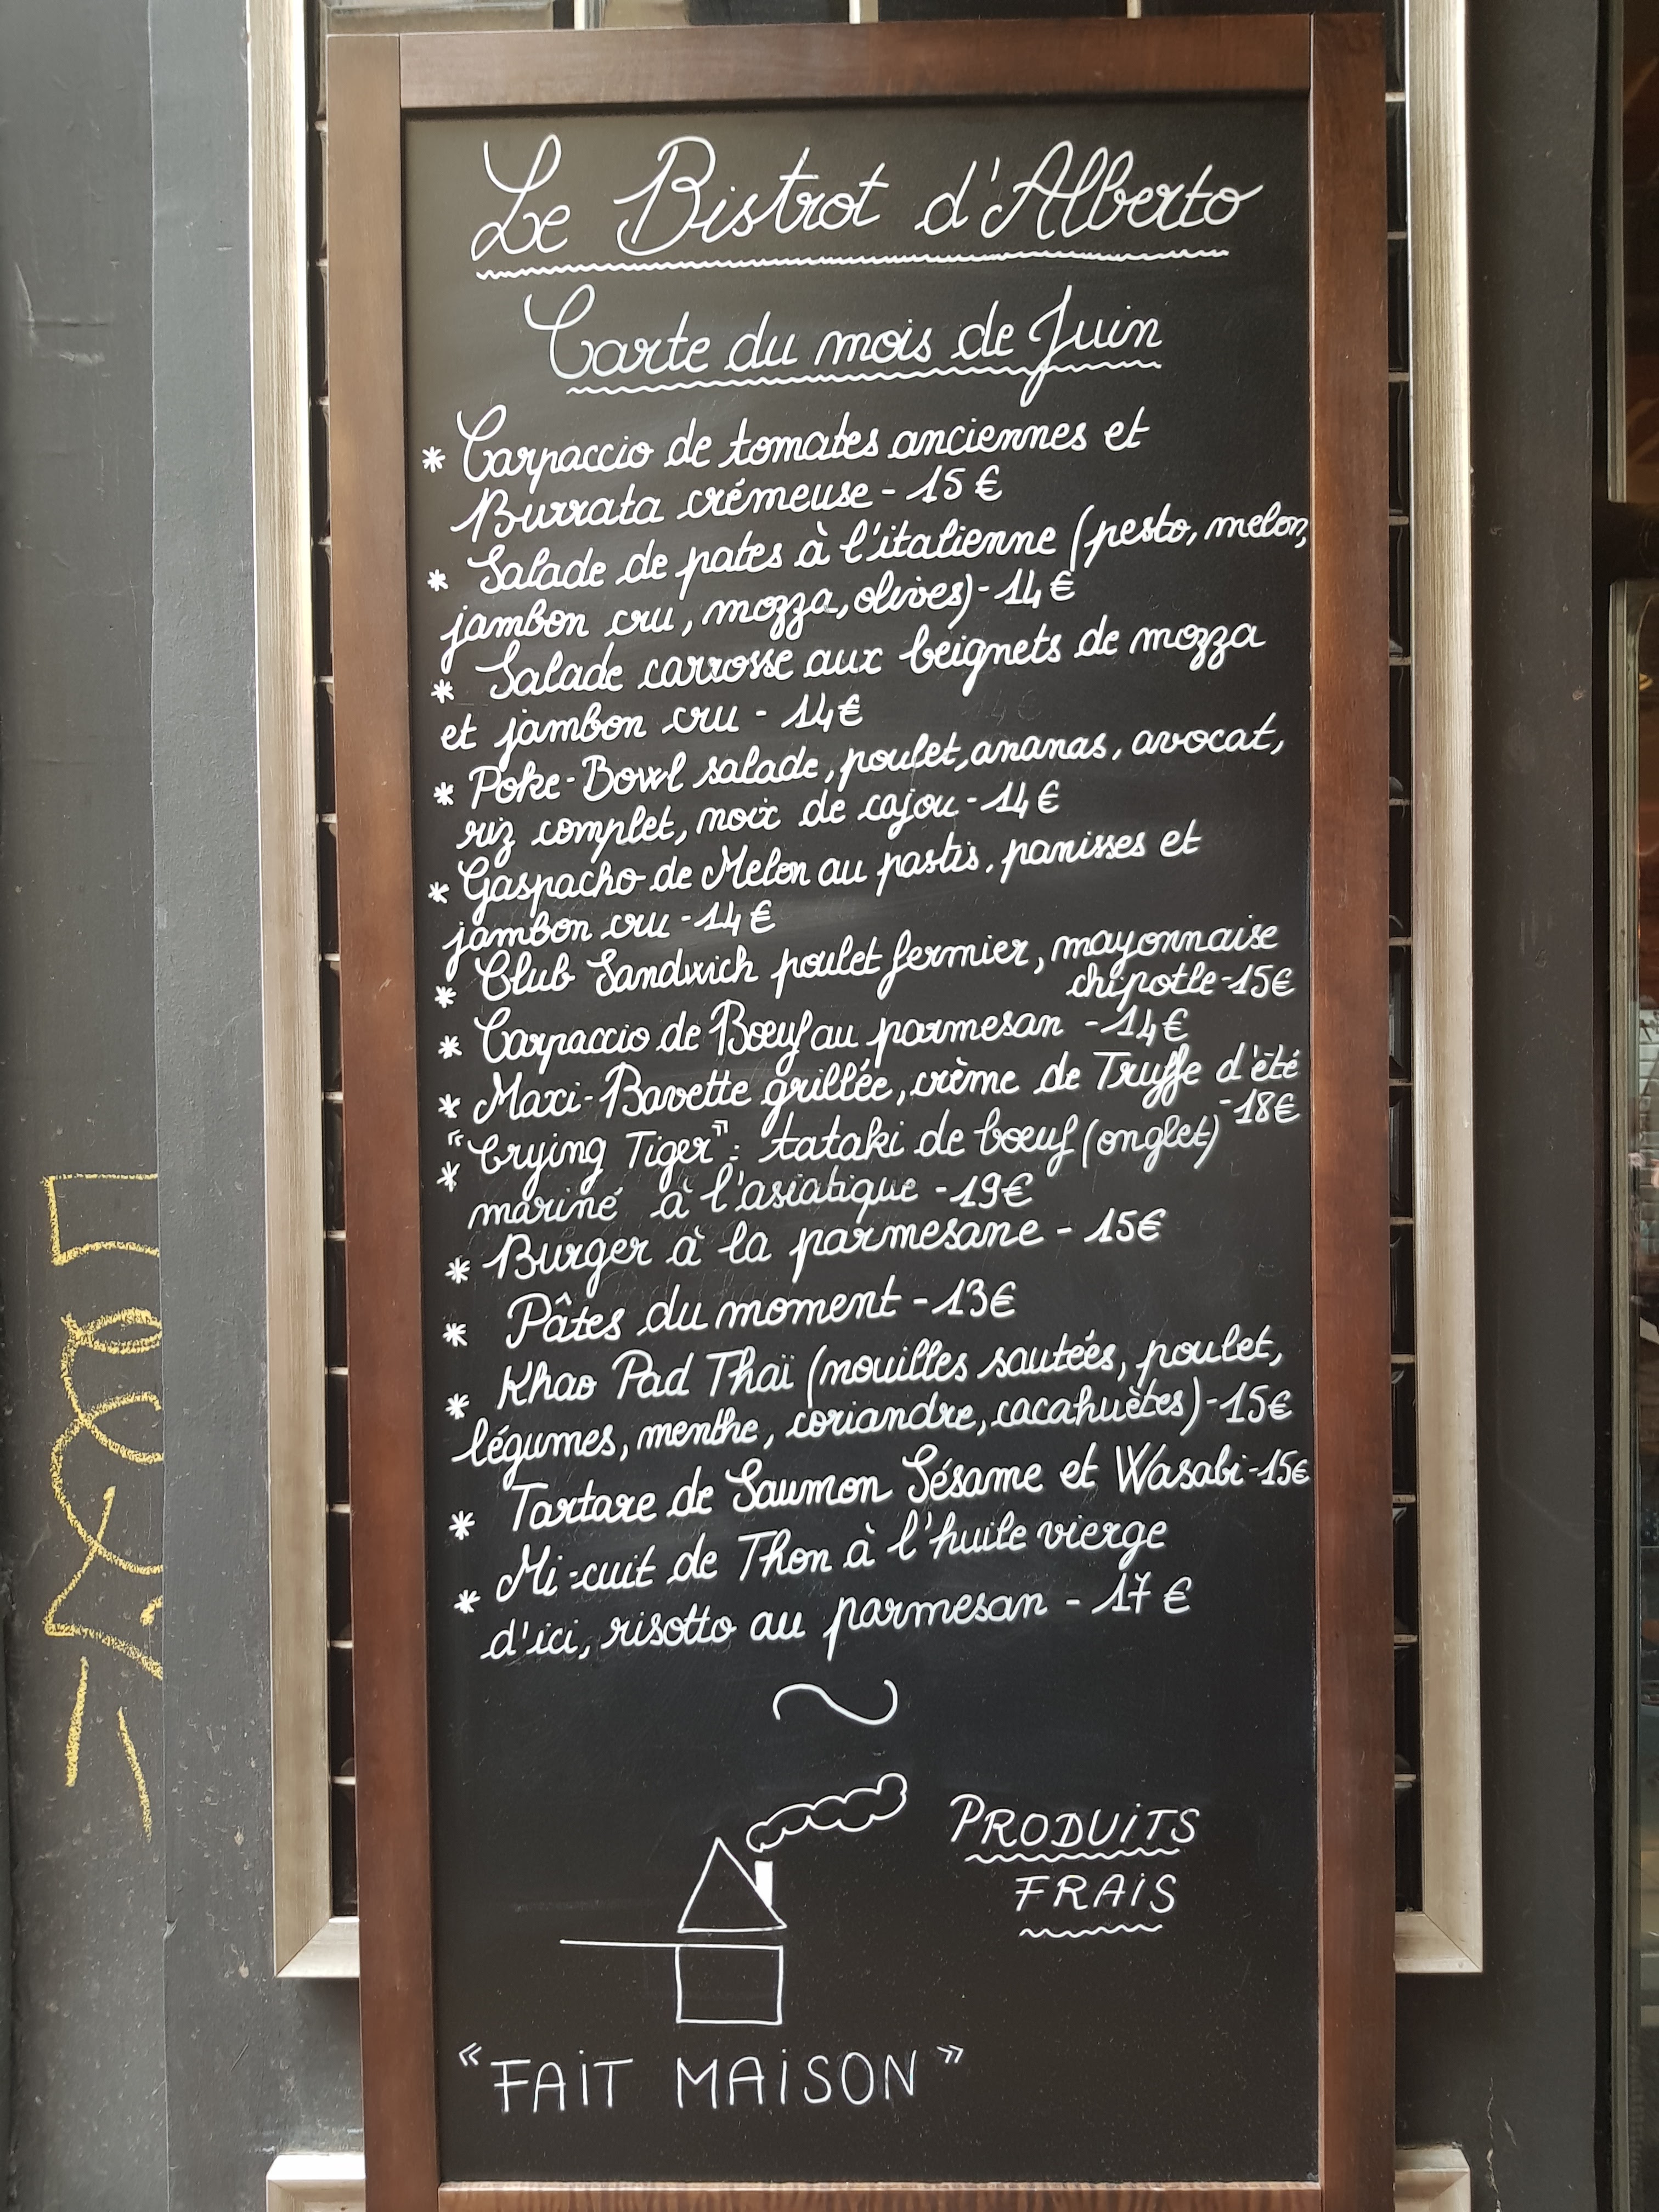 Le Bistrot d'Alberto
Carte du mois de Juin
* Carpaccio de tomates anciennes et
Burrata crémeuse - 15 €
* Salade de pates à l'italienne (pesto, melon,
jambon cru, mozza, olives) - 14 €
* Salade carrosse aux beignets de mozza
et jambon cru - 14€
* Poke-Bowl salade, poulet, ananas, avocat,
riz complet, noix de cajou - 14 €
* Gaspacho de Melon au pastis, panisses et
jambon cru - 14 €
* Club Sandwich poulet fermier, mayonnaise
chipotle - 15€
* Carpaccio de Bœuf au parmesan - 14 €
* Maxi-Bavette grillée, crème de Truffe d'été
- 18€
* "Crying Tiger" : tataki de bœuf (onglet)
mariné à l'asiatique - 19€
* Burger à la parmesane - 15€
* Pâtes du moment - 13€
* Khao Pad Thaï (nouilles sautées, poulet,
légumes, menthe, coriandre, cacahuètes) - 15€
* Tartare de Saumon Sésame et Wasabi - 15€
* Mi-cuit de Thon à l'huile vierge
d'ici, risotto au parmesan - 17 €
PRODUiTS
FRAiS
"FAiT MAiSON"